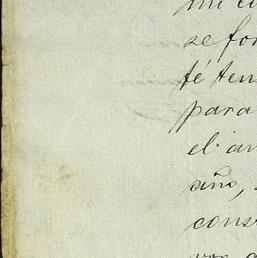 mi
se for
fé ten
para
el an
año,
cons